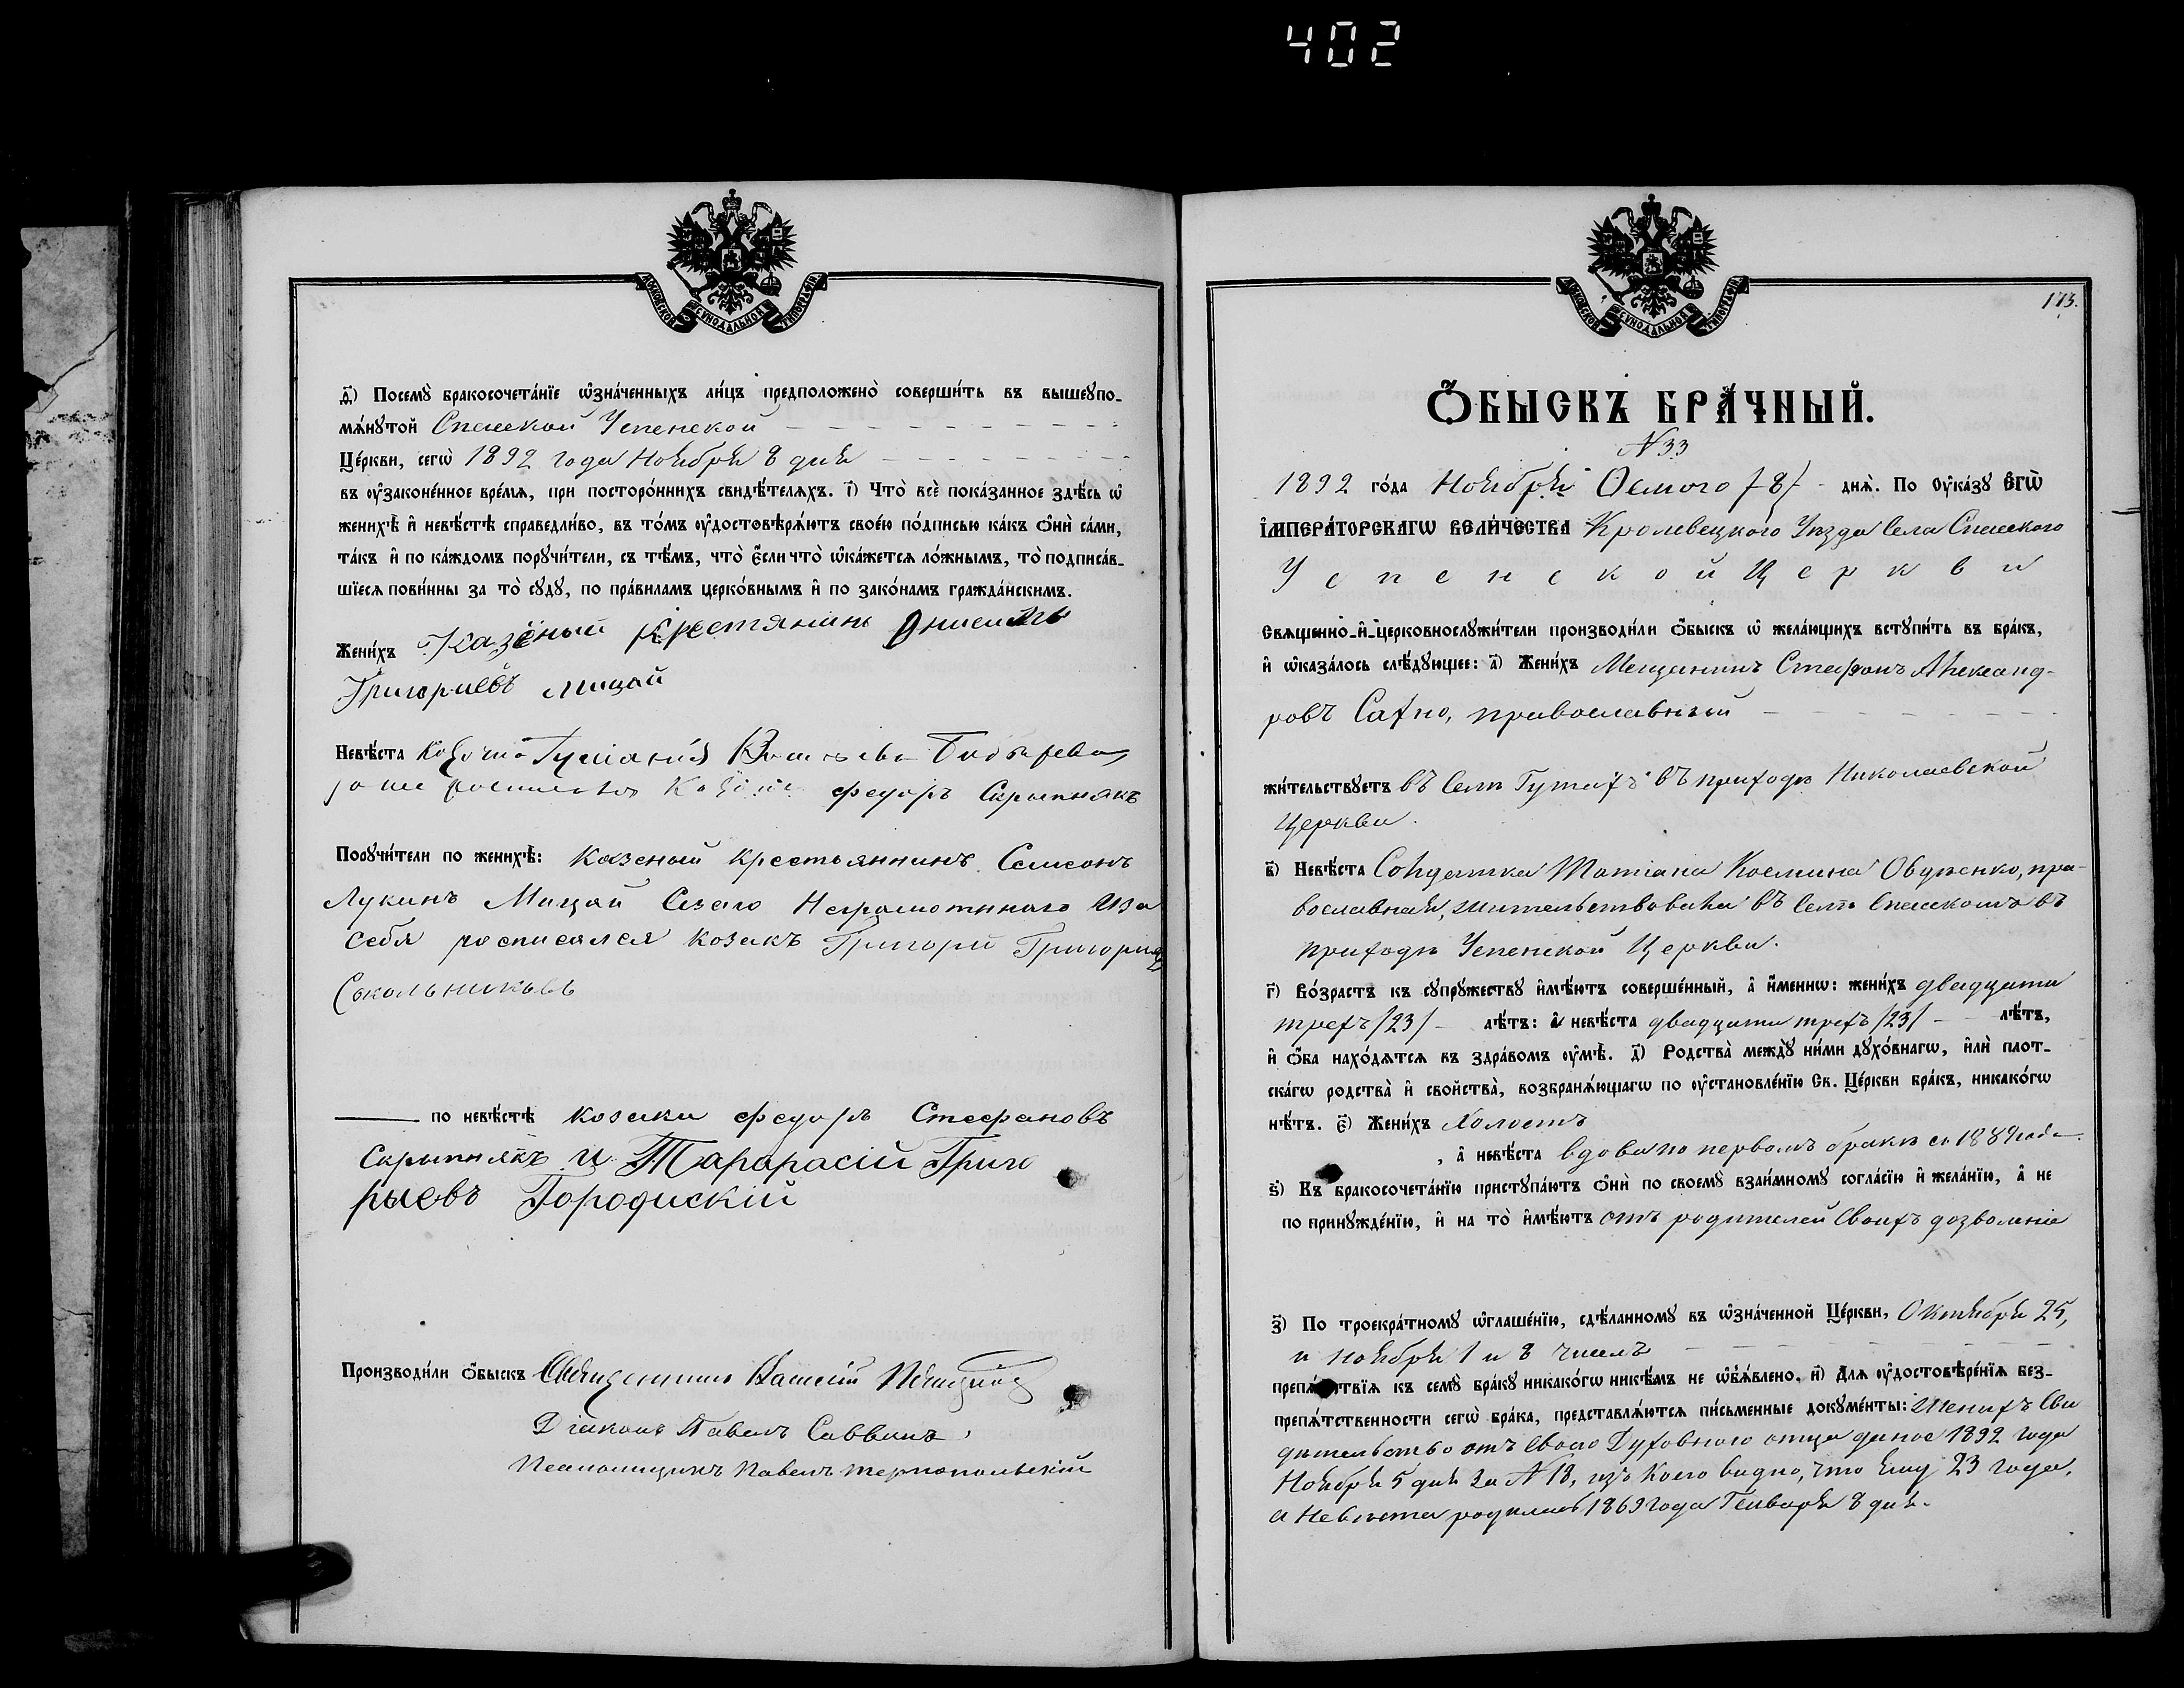 402
МОСКОВСКОЙ СѴНОДАЛЬНОЙ ТИПОГРАФІИ
д҃) Посемꙋ̀ бракосочета́нїе ѡ҆зна́ченныхъ ли́цъ предположено̀ соверши́ть въ вышеꙋпо-
мѧ́нꙋтой Спасской Успенской
Це́ркви, сегѡ̀ 1892 года Ноября 8 дня
въ ᲂу҆законе́нное вре́мѧ, при посторо́ннихъ свидѣ́телѧхъ. і҃) Что̀ всѐ пока́занное здѣ́сь ѡ҆
женихѣ̀ и҆ невѣ́стѣ справедли́во, въ то́мъ ᲂу҆достовѣрѧ́ютъ свое́ю по́дписью ка́къ ѻ҆нѝ са́ми,
та́къ и҆ по ка́ждомъ порꙋчи́тели, съ тѣ́мъ, что̀ є҆́сли что̀ ѡ҆ка́жетсѧ ло́жнымъ, то̀ подписа́в-
шїесѧ пови́нны за то̀ сꙋдꙋ, по пра́виламъ церко́внымъ и҆ по зако́намъ гражда́нскимъ.
Жени́хъ Казёный Крестянинъ Онисимъ
Григориевъ Мицай
Невѣ́ста Козачка
Козакъ Федоръ Скрыпнякъ
Порꙋчи́тели по женихѣ̀: Казеный крестьяннинъ Симеонъ
Лукинъ Мицай Сезаго Неграмотннаго Иза
себя росписался козакъ Григори Григориев
Сокольниковъ
по невѣ́стѣ козаки Федоръ Стефановъ
Скрыпнякъ и Тарарасій Григо
рыевъ Городискій
Производи́ли ѻ҆́быскъ Священникъ Василій
Діаконъ Павелъ Саввинъ
Псаломщикъ Павелъ Тернопольскій
МОСКОВСКОЙ СѴНОДАЛЬНОЙ ТИПОГРАФІИ
173.
Ѻ҆́БЫСКЪ БРА́ЧНЫЙ.
N 33
1892 го́да Ноября Осмого /8/ днѧ̀. По ᲂу҆ка́зꙋ Є҆гѡ̀
І҆мпера́торскагѡ Вели́чества Кролевецкого Уезда Села Спасского
Успенской Церкви
Свѧщенно-и҆-церковнослꙋжи́тели производи́ли ѻ҆́быскъ ѡ҆ жела́ющихъ встꙋпи́ть въ бра́къ,
и҆ ѡ҆каза́лось слѣ́дꙋющее: а҃) Жени́хъ Мещанинъ Стефанъ Александ-
ровъ Сахно, православный
жи́тельствꙋетъ въ Селѣ Гутахъ въ приходѣ Николаевской
Церкви.
в҃) Невѣ́ста Солдатка Татіана Космина Овдѣенко, пра-
вославная, жительствовала въ Селѣ Спасскомъ въ
приходѣ Успенской Церкви.
г҃) Во́зрастъ къ сꙋпрꙋжествꙋ и҆мѣ́ютъ соверше́нный, а҆ и҆́меннѡ: жени́хъ двадцати
трехъ /23/ лѣ́тъ: а҆ невѣ́ста двадцати трехъ /23/ лѣ́тъ,
и҆ ѻ҆́ба нахо́дѧтсѧ въ здра́вомъ ᲂу҆мѣ̀. д҃) Родства̀ междꙋ̀ ни́ми дꙋхо́внагѡ, и҆лѝ плот-
ска́гѡ родства̀ и҆ свойства̀, возбранѧ́ющагѡ по ᲂу҆становле́нїю Св. Це́ркви бра́къ, никако́гѡ
нѣ́тъ. є҃) Жени́хъ Холостъ
, а҆ невѣ́ста вдова по первомъ бракѣ съ 1889 года.
ѕ҃) Къ бракосочета́нїю пристꙋпа́ютъ ѻ҆нѝ по своемꙋ̀ взаи́мномꙋ согла́сїю и҆ жела́нїю, а҆ не
по принꙋжде́нїю, и҆ на то̀ и҆мѣ́ютъ отъ родителей Своихъ дозволеніе
з҃) По троекра́тномꙋ ѡ҆глаше́нїю, сдѣ́ланномꙋ въ ѡ҆зна́ченной Це́ркви, Октября 25,
и ноября 1 и 8 чиселъ
препѧ́тствїѧ къ семꙋ̀ бра́кꙋ никако́гѡ никѣ́мъ не ѡ҆б̾ѧ́влено. и҃) Для ᲂу҆достовѣре́нїѧ без-
препѧ́тственности сегѡ̀ бра́ка, представлѧ́ютсѧ пи́сьменные докꙋме́нты: Женихъ Сви
дѣтельство отъ Своего Духовного отца даное 1892 года
Ноября 5 дня за N 18, изъ коего видно, что ему 23 года,
а Невѣста родилась 1869 года Генваря 8 дня.